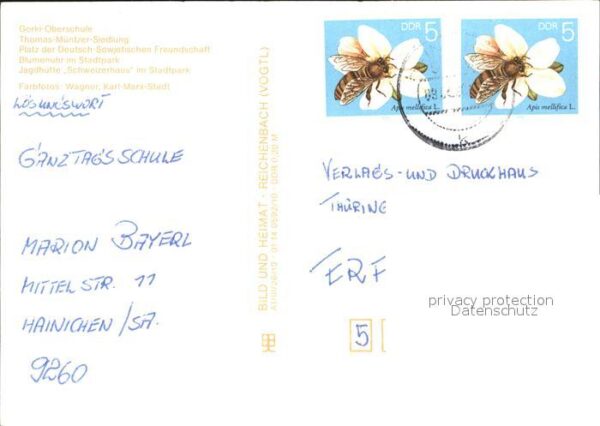 Gorki-Oberschule
Thomas-Müntzer-Siedlung
Platz der Deutsch-Sowjetischen Freundschaft
Blumenuhr im Stadtpark
Jagdhütte „Schweizerhaus" im Stadtpark
Farbfotos: Wagner, Karl-Marx-Stadt
LÖSUNGSWORT
GANZTAGSSCHULE
MARION BAYERL
MITTELSTR. 11
HAINICHEN/SA.
9260
BILD UND HEIMAT · REICHENBACH (VOGTL)
DDR 5
Apis mellifica L.
DDR 5
Apis mellifica L.
VERLAGS- UND DRUCKHAUS
THÜRINE
ERF
5
privacy protection
Datenschutz